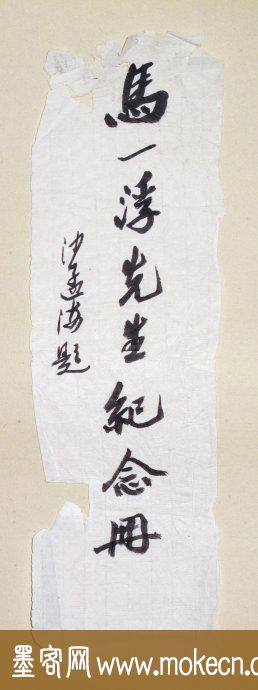 馬一浮先生紀念冊
沙孟海題
墨客网 www.mokecn.c